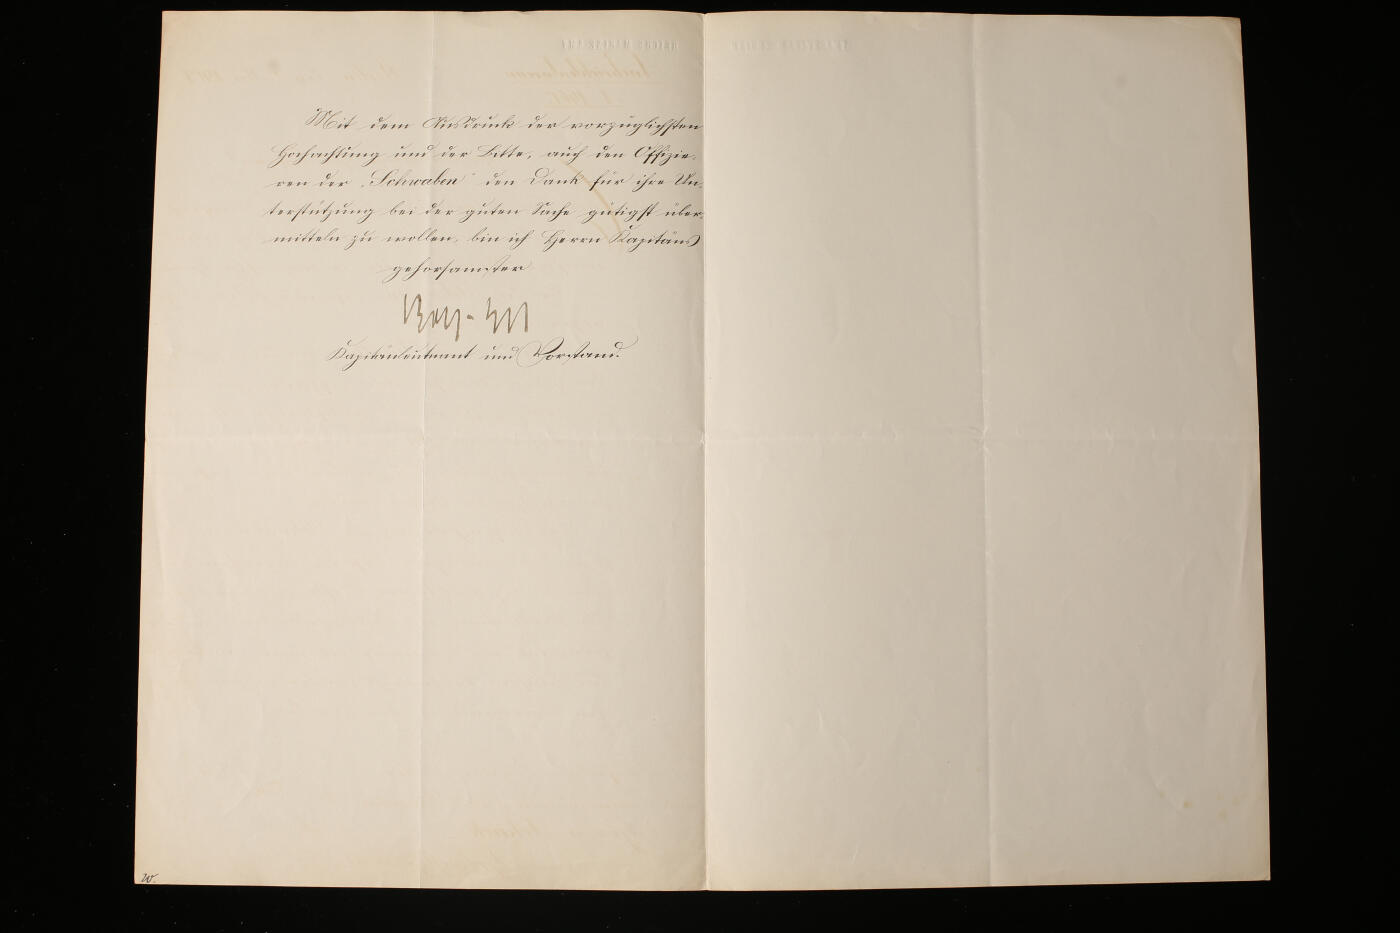 Mit dem Ausdruck der vorzüglichsten
Hochachtung und der Bitte, auch den Offizie-
ren der „Schwaben“ den Dank für ihre Un-
terstützung bei der guten Sache gütigst über-
mitteln zu wollen, bin ich Herrn Kapitäns
gehorsamster
Kapitänleutnant und Vorstand.
w.